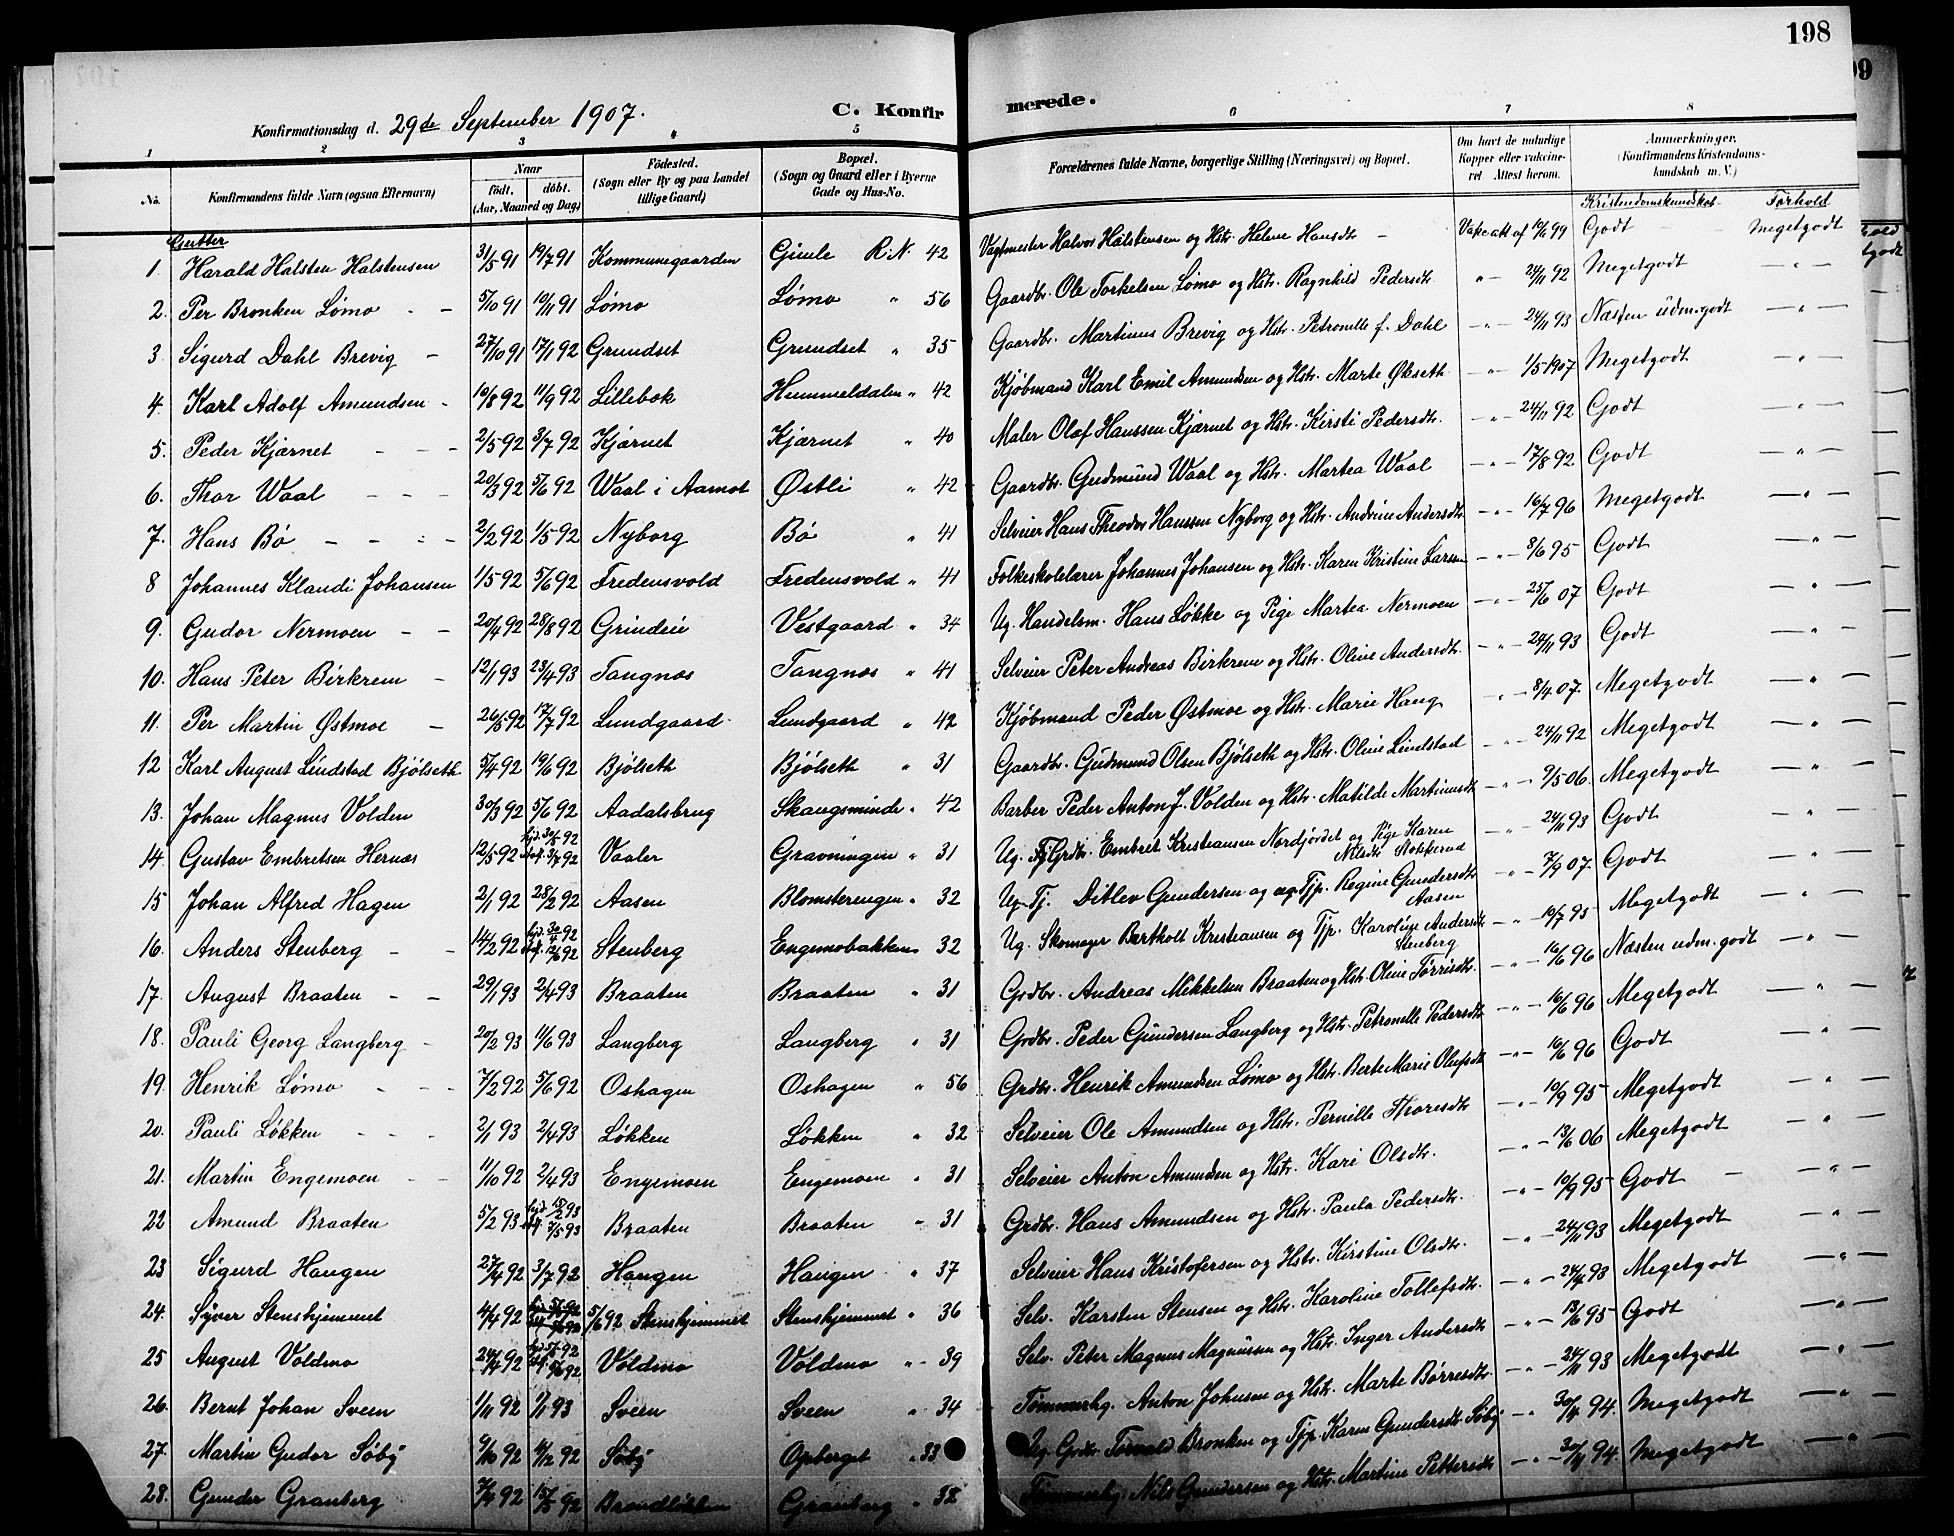 198
Konfirmationsdag d. 29de September 1907.
C. Konfirmerede.
1 2 3 4 5 6 7 8
No. Konfirmandens fulde Navn (ogsaa Efternavn) Naar födt, döbt. (Aar, Maaned og Dag) Födested. (Sogn eller By og paa Landet tillige Gaard) Bopæl. (Sogn og Gaard eller i Byerne Gade og Hus-No. Forældrenes fulde Navne, borgerlige Stilling (Næringsvei) og Bopæl. Om havt de naturlige Kopper eller vakcineret Attest herom. Anmærkninger. (Konfirmandens Kristendomskundskab m. V.)
Kristendomskundskab Forhold
Gutter
1. Harald Halsten Halstensen 31/5 91 19/7 91 Kommunegaarden Gimle R.N. 42 Vagtmester Halvor Halstensen og Hstr. Helene Hansdtr. Vakc att af 99 Godt Megetgodt
2. Per Bronken Lömo 5/10 91 10/11 91 Lömo Lömo " 56 Gaardbr. Ole Torkelsen Lömo og Hstr. Ragnhild Pedersdtr. " 24/11 92 Megetgodt "
3. Sigurd Dahl Brevig 27/10 91 17/1 92 Grundset Grundset " 35 Gaardbr. Martinus Brevig og Hstr. Petronelle f. Dahl " 24/11 93 Næsten udm.godt "
4. Karl Adolf Amundsen 10/8 92 11/9 92 Lillebok Hummeldalen " 42 Kjöbmand Karl Emil Amundsen og Hstr. Marte Økseth " 1/5 1907 Megetgodt "
5. Peder Kjærnet 2/5 92 3/7 92 Kjærnet Kjærnet " 40 Maler Olaf Hanssen Kjærnet og Hstr. Kirsti Pedersdtr. " 24/11 92 Godt "
6. Thor Waal 20/3 92 5/6 92 Waal i Aamot Østli " 42 Gaardbr. Gudmund Waal og Hstr. Martea Waal " 17/8 92 Godt "
7. Hans Bö 2/2 92 1/5 92 Nyborg Bö " 41 Selveier Hans Theodor Hanssen Nyborg og Hstr. Andrine Andersdtr. " 16/7 96 Megetgodt "
8 Johannes Klaudi Johansen 1/5 92 5/6 92 Fredensvold Fredensvold " 41 Folkeskolelærer Johannes Johansen og Hstr. Karen Kristine Larsen " 8/6 95 Godt "
9. Gudor Nermoen 20/4 92 28/8 92 Grindeie Vestgaard " 34 Ug. Handelsm. Hans Løkke og Pige Martea Nermoen " 25/6 07 Godt "
10. Hans Peter Birkrem 12/1 93 23/4 93 Tangnæs Tangnæs " 41 Selveier Peter Andreas Birkrem og Hstr. Oline Andersdtr. " 24/11 93 Godt "
11. Per Martin Østmoe 26/5 92 17/7 92 Lundgaard Lundgaard " 42 Kjöbmand Peder Østmoe og Hstr. Marie Haug " 8/4 07. Megetgodt "
12 Karl August Lindstad Bjölseth 5/4 92 19/6 92 Bjölseth Bjölseth " 31 Gaardbr. Gudmund Olsen Bjölseth og Hstr. Oline Lindstad " 24/11 92 Megetgodt "
13. Johan Magnus Volden 30/3 92 5/6 92 Aadalsbrug Skaugsminde " 42 Barber Peder Anton J. Volden og Hstr. Matilde Martinusdtr " 9/5 06. Megetgodt "
14. Gustav Embretsen Hernæs 12/5 92 hjd. 30/5 92 stdf. 3/7 92 Vaaler Gravningen " 31 Ug. Grdbr. Embret Kristiansen Nordjordet og Pige Karen Nilsdtr. Stokkerud " 24/11 93 Godt "
15 Johan Alfred Hagen 2/1 92 28/2 92 Aasen Blomsterengen " 32 Ug. Tj. Ditlev Gundersen og ug. Tjp. Regine Gundersdtr Aasen " 7/9 07. Godt "
16. Anders Stenberg 14/2 92 hjd. 30/4 92 stdf. 12/6 92 Stenberg Engemobakken " 32 Ug. Skomager Bertholt Kristiansen og Tjp. Karoline Andersdtr Stenberg " 10/7 95 Megetgodt "
17. August Braaten 29/1 93 2/4 93 Braaten Braaten " 31 Grdbr. Andreas Mikkelsen Braaten og Hstr Oline Törrisdtr. " 16/6 96 Næsten udm.godt "
18. Pauli Georg Langberg 20/2 93 11/6 93 Langberg Langberg " 31 Grdbr. Peder Gundersen Langberg og Hstr. Petronelle Pedersdtr " 16/6 96 Megetgodt "
19. Henrik Lömo 7/2 92 5/6 92 Oshagen Oshagen " 56 Grdbr. Henrik Amundsen Lömo og Hstr. Berte Marie Olufsdtr " 16/6 96 Godt "
20. Pauli Løkken 2/1 93 2/4 93 Løkken Løkken " 32 Selveier Ole Amundsen og Hstr. Pernille Thoresdtr " 10/9 95 Megetgodt "
21. Martin Engemoen 11/10 92 2/4 93 Engemoen Engemoen " 31 Selveier Anton Amundsen og Hstr. Kari Olsdtr. " 13/6 06 Megetgodt "
22 Amund Braaten 5/2 93 hjd. 15/2 93 stdf. 7/5 93 Braaten Braaten " 31 Grdbr. Hans Amundsen og Hstr. Paula Pedersdtr. " 10/9 95 Godt "
23 Sigurd Haugen 27/4 92 3/7 92 Haugen Haugen " 37 Selveier Hans Kristofersen og Hstr. Kirstine Olsdtr. " 24/11 93 Megetgodt "
24. Syver Stenshjemmet 4/4 92 5/6 92 Stenshjemmet Stenshjemmet " 36 Selv. Karsten Stensen og Hstr. Karoline Tollefsdtr. " 24/11 93 Megetgodt "
25 August Voldmo 24/4 92 Voldmo Voldmo " 39 Selv. Peter Magnus Magnussen og Hstr. Inger Andersdtr " 95 Godt "
26. Bernt Johan Sveen 1/11 92 1/1 93 Sveen Sveen " 34 Tömmerhg. Anton Johnsen og Hstr. Marte Börresdtr " 24/11 93 Megetgodt "
27. Martin Gudor Söby 9/10 92 4/12 92 Söby Opberget " 33 Ug. Grdbr. Torvald Bronken og Tjp. Karen Gundersdtr Söby " 30/4 94. Megetgodt "
28. Gunder Granberg 7/4 92 15/5 92 Brændløkken Granberg " 32 Tömmerhg. Nils Gundersen og Hstr. Martine Pettersdtr " 30/4 94. Megetgodt "